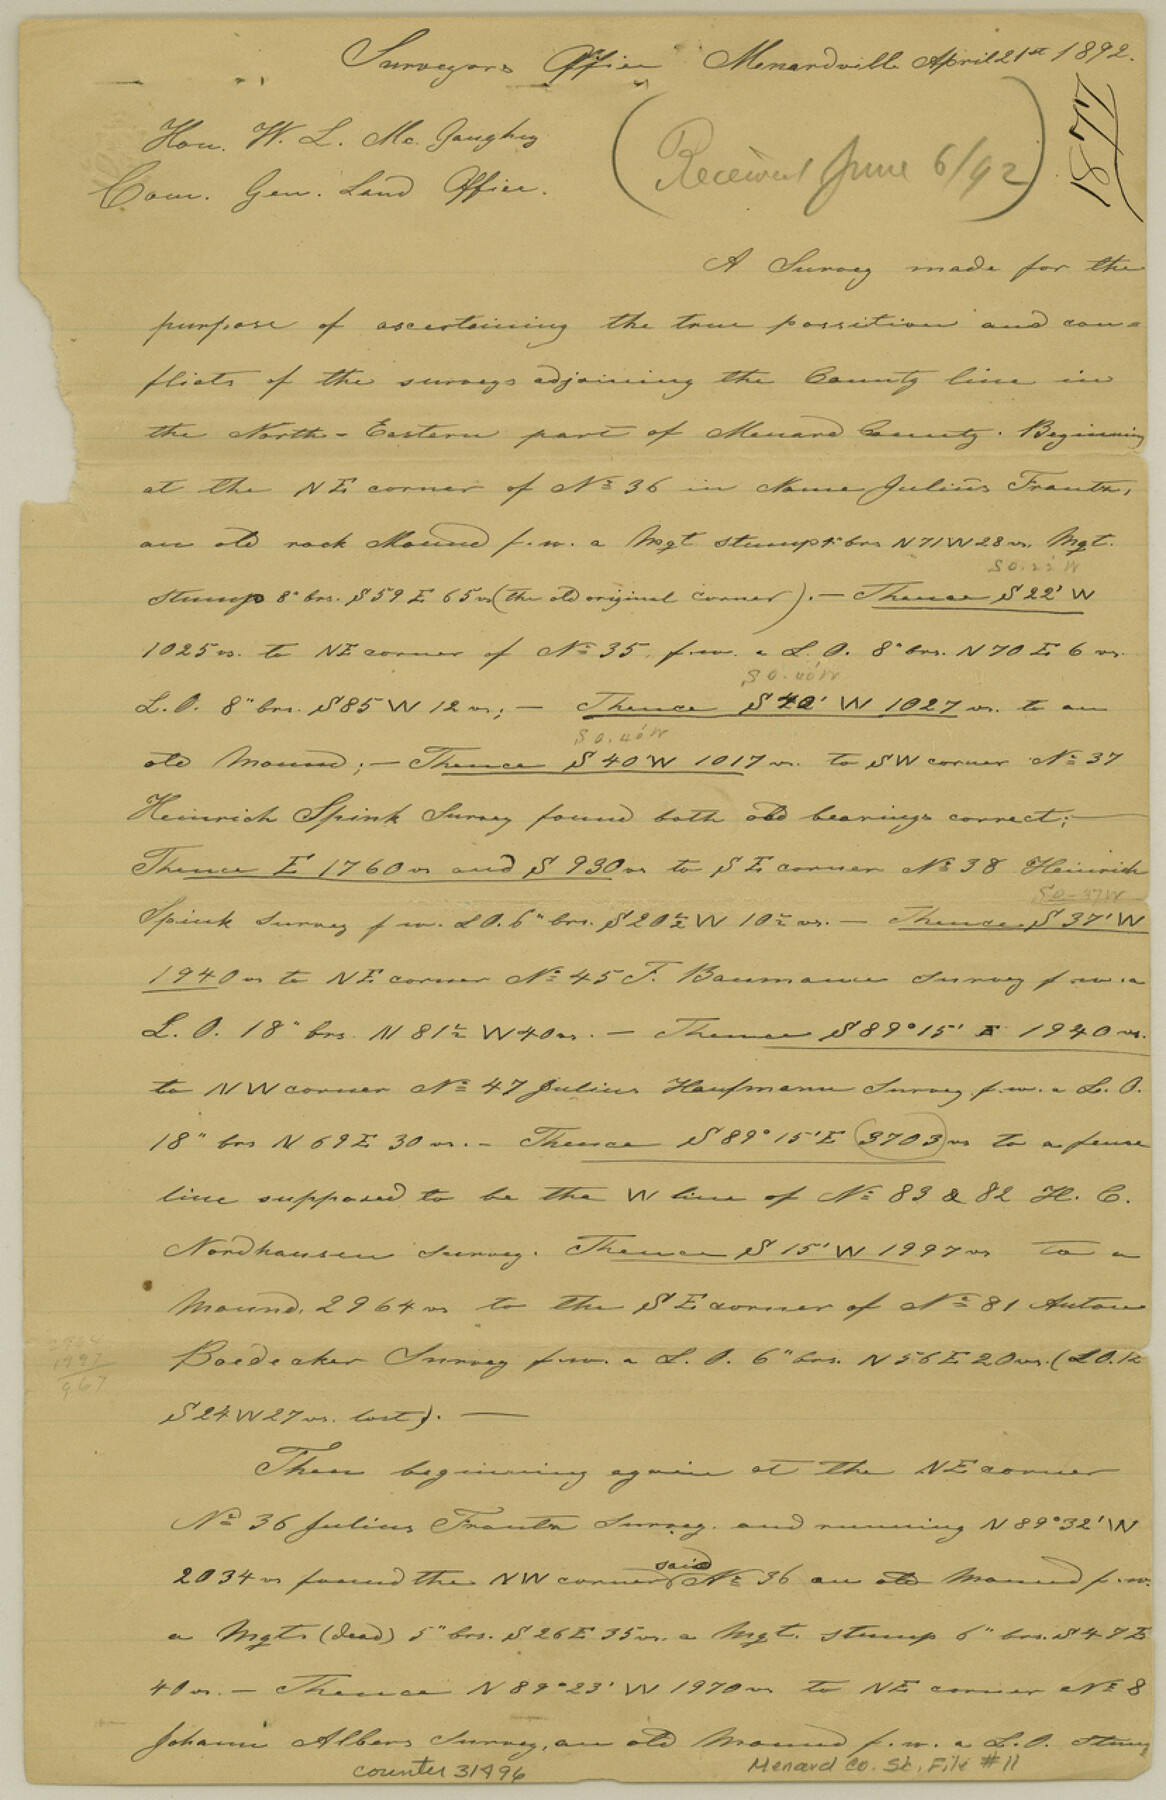 Surveyors Office Menardville April 21st 1892.
Hon. W. L. Mc. Gaughey
Com. Gen. Land Office.
(Received June 6/92)
A Survey made for the
purpose of ascertaining the true possition and con=
flicts of the surveys adjoining the County line in
the North-Eastern part of Menard County. Beginning
at the NE corner of No 36 in Name Julius Frantz,
an old rock Mound f.w. a Mqt. stump brs N 71 W 28 vs. Mqt.
S 0.22' W
stump 8" brs. S 59 E 65 vs (the old original corner). — Thence S 22' W
1025 vs. to NE corner of No 35, f.w. a L.O. 8" brs. N 70 E 6 vs.
S 0.40' W
L.O. 8" brs. S 85 W 12 vs; — Thence S 42' W 1027 vs. to an
S 0.40' W
old Mound; — Thence S 40' W 1017 vs. to SW corner No 37
Heinrich Spink Survey found both old bearings correct; —
Thence E 1760 vs and S 930 vs to SE corner No 38 Heinrich
S 0-37 W
Spink survey f.w. L.O. 6" brs. S 20½ W 10½ vs. — Thence S 37' W
1940 vs to NE corner No 45 F. Baumann survey f.w. a
L.O. 18" brs. N 81½ W 40 vs. — Thence S 89° 15' E 1940 vs.
to NW corner No 47 Julius Haufmann Survey f.w. a L.O.
18" brs N 69 E 30 vs. - Thence S 89° 15' E 3703 vs to a fence
line supposed to be the W line of No 83 & 82 H. C.
Nordhausen survey. Thence S 15' W 1997 vs to a
Mound, 2964 vs to the SE corner of No 81 Anton
Boedecker Survey f.w. a L.O. 6" brs. N 56 E 20 vs. (L.O. 12
S 24 W 27 vs. lost). —
2964
1997
967
Then beginning again at the NE corner
No 36 Julius Frantz Survey and running N 89° 32' W
2034 vs found the NW corner said No 36 an old Mound f.w.
a Mqt. (dead) 5" brs. S 26 E 35 vs. a Mqt. stump 6" brs. S 47 E
40 vs. — Thence N 89° 23' W 1970 vs to NE corner No 8
Johann Albers Survey, an old Mound f.w. a L.O. stump
counter 31496
Menard Co. Sk. File #11